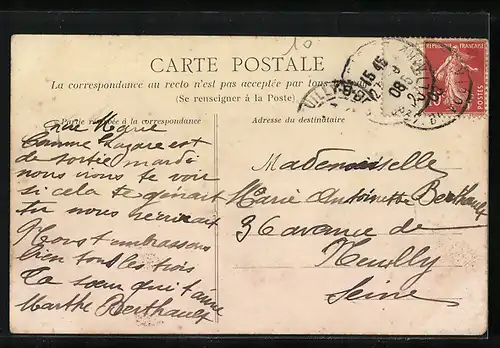 10
CARTE POSTALE
La correspondance au recto n'est pas acceptée par tous
(Se renseigner à la Poste)
Partie réservée à la correspondance
Adresse du destinataire
REPUBLIQUE FRANÇAISE
POSTES
15 45
08
Comme Lazare est
de sortie mardi
nous irons te voir
si cela te gênait
tu nous
Nous t'embrassons
bien tous les trois
Ta sœur qui t'aime
Marthe Berthault
Mademoiselle
Marie Antoinette Berthault
36 avenue de
Neuilly
Seine